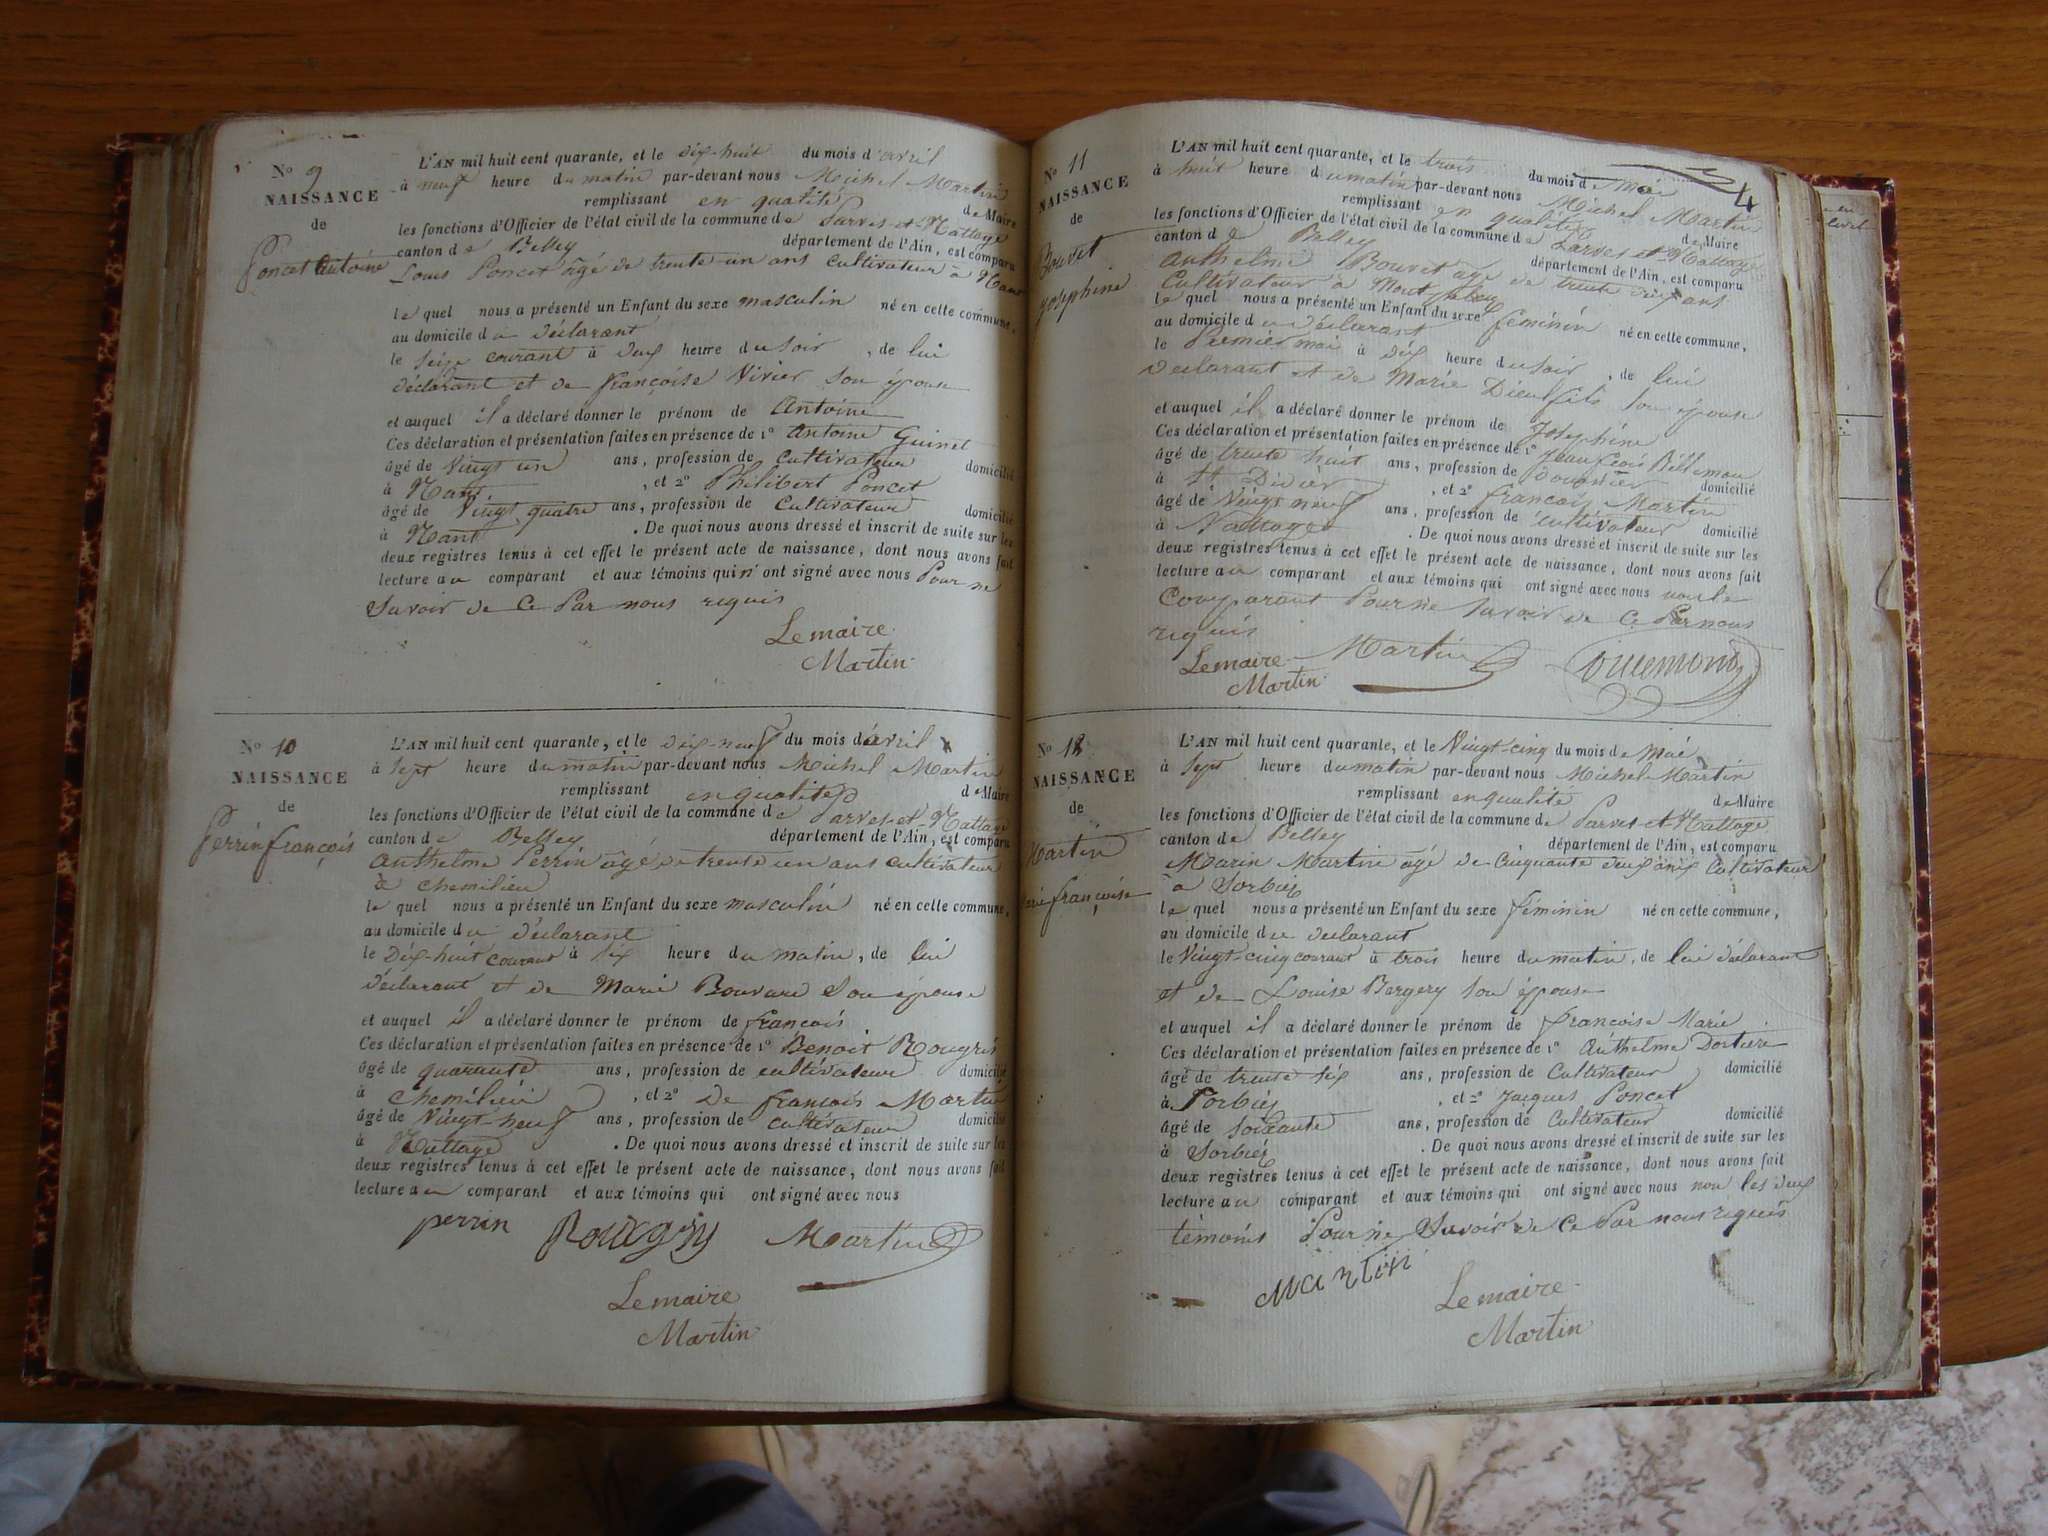 N° 9
NAISSANCE
de
Poncet Antoine
L'AN mil huit cent quarante, et le dix-huit du mois d'avril
à neuf heure du matin par-devant nous Michel Martin
remplissant en qualité de Maire
les fonctions d'Officier de l'état civil de la commune de Parves et Nattage
canton de Belley département de l'Ain, est comparu
Louis Poncet âgé de trente un ans cultivateur à Nant
le quel nous a présenté un Enfant du sexe masculin né en cette commune,
au domicile du déclarant
le seize courant à deux heure du soir, de lui
déclarant et de françoise Vivier son épouse
et auquel il a déclaré donner le prénom de Antoine
Ces déclaration et présentation faites en présence de 1° Antoine Guinet
âgé de Vingt un ans, profession de cultivateur domicilié
à Nant, et 2° Philibert Poncet
âgé de Vingt quatre ans, profession de Cultivateur domicilié
à Nant. De quoi nous avons dressé et inscrit de suite sur les
deux registres tenus à cet effet le présent acte de naissance, dont nous avons fait
lecture au comparant et aux témoins qui n'ont signé avec nous Pour ne
Savoir de Ce Par nous requis
Lemaire
Martin
N° 10
NAISSANCE
de
Perrin françois
L'AN mil huit cent quarante, et le dix-neuf du mois d'avril
à Sept heure du matin par-devant nous Michel Martin
remplissant en qualité de Maire
les fonctions d'Officier de l'état civil de la commune de Parves et Nattage
canton de Belley département de l'Ain, est comparu
Anthelme Perrin âgé de trente un ans cultivateur
à Chemilieu
le quel nous a présenté un Enfant du sexe masculin né en cette commune,
au domicile du déclarant
le Dix-huit courant à six heure du matin, de lui
déclarant et de Marie Bouvard son épouse
et auquel il a déclaré donner le prénom de françois
Ces déclaration et présentation faites en présence de 1° Benoit
âgé de quarante ans, profession de cultivateur domicilié
à Chemilieu, et 2° De françois Martin
âgé de Vingt-neuf ans, profession de cultivateur domicilié
à Nattage. De quoi nous avons dressé et inscrit de suite sur les
deux registres tenus à cet effet le présent acte de naissance, dont nous avons fait
lecture au comparant et aux témoins qui ont signé avec nous
perrin Martin
Lemaire
Martin
N° 11
NAISSANCE
de
Bouvet
josephine
L'AN mil huit cent quarante, et le trois du mois de Mai
à huit heure du matin par-devant nous Michel Martin
remplissant en qualité de Maire
les fonctions d'Officier de l'état civil de la commune de Parves et Nattage
canton de Belley département de l'Ain, est comparu
Anthelme Bouvet âgé de trente ans
Cultivateur à
le quel nous a présenté un Enfant du sexe féminin né en cette commune,
au domicile du déclarant
le Premier mai à dix heure du soir, de lui
déclarant et de Marie Dieulfils son épouse
et auquel il a déclaré donner le prénom de Josephine
Ces déclaration et présentation faites en présence de 1°
âgé de trente huit ans, profession de douanier domicilié
à St Didier, et 2° françois Martin
âgé de Vingt neuf ans, profession de cultivateur domicilié
à Nattage. De quoi nous avons dressé et inscrit de suite sur les
deux registres tenus à cet effet le présent acte de naissance, dont nous avons fait
lecture au comparant et aux témoins qui ont signé avec nous non le
Comparant Pour ne Savoir de Ce Par nous
requis
Lemaire Martin
Martin
N° 12
NAISSANCE
de
Martin
françoise
L'AN mil huit cent quarante, et le Vingt-cinq du mois de Mai
à Sept heure du matin par-devant nous Michel Martin
remplissant en qualité de Maire
les fonctions d'Officier de l'état civil de la commune de Parves et Nattage
canton de Belley département de l'Ain, est comparu
Marin Martin âgé de Cinquante deux ans Cultivateur
à Sorbiés
le quel nous a présenté un Enfant du sexe féminin né en cette commune,
au domicile du déclarant
le Vingt-cinq courant à trois heure du matin, de lui déclarant
et de Louise Bergery son épouse
et auquel il a déclaré donner le prénom de françoise Marie
Ces déclaration et présentation faites en présence de 1° Anthelme
âgé de trente six ans, profession de Cultivateur domicilié
à Sorbiés, et 2° Jacques Poncet
âgé de soixante ans, profession de Cultivateur domicilié
à Sorbiés. De quoi nous avons dressé et inscrit de suite sur les
deux registres tenus à cet effet le présent acte de naissance, dont nous avons fait
lecture au comparant et aux témoins qui ont signé avec nous non les deux
témoins Pour ne Savoir de Ce Par nous requis
Martin
Lemaire
Martin